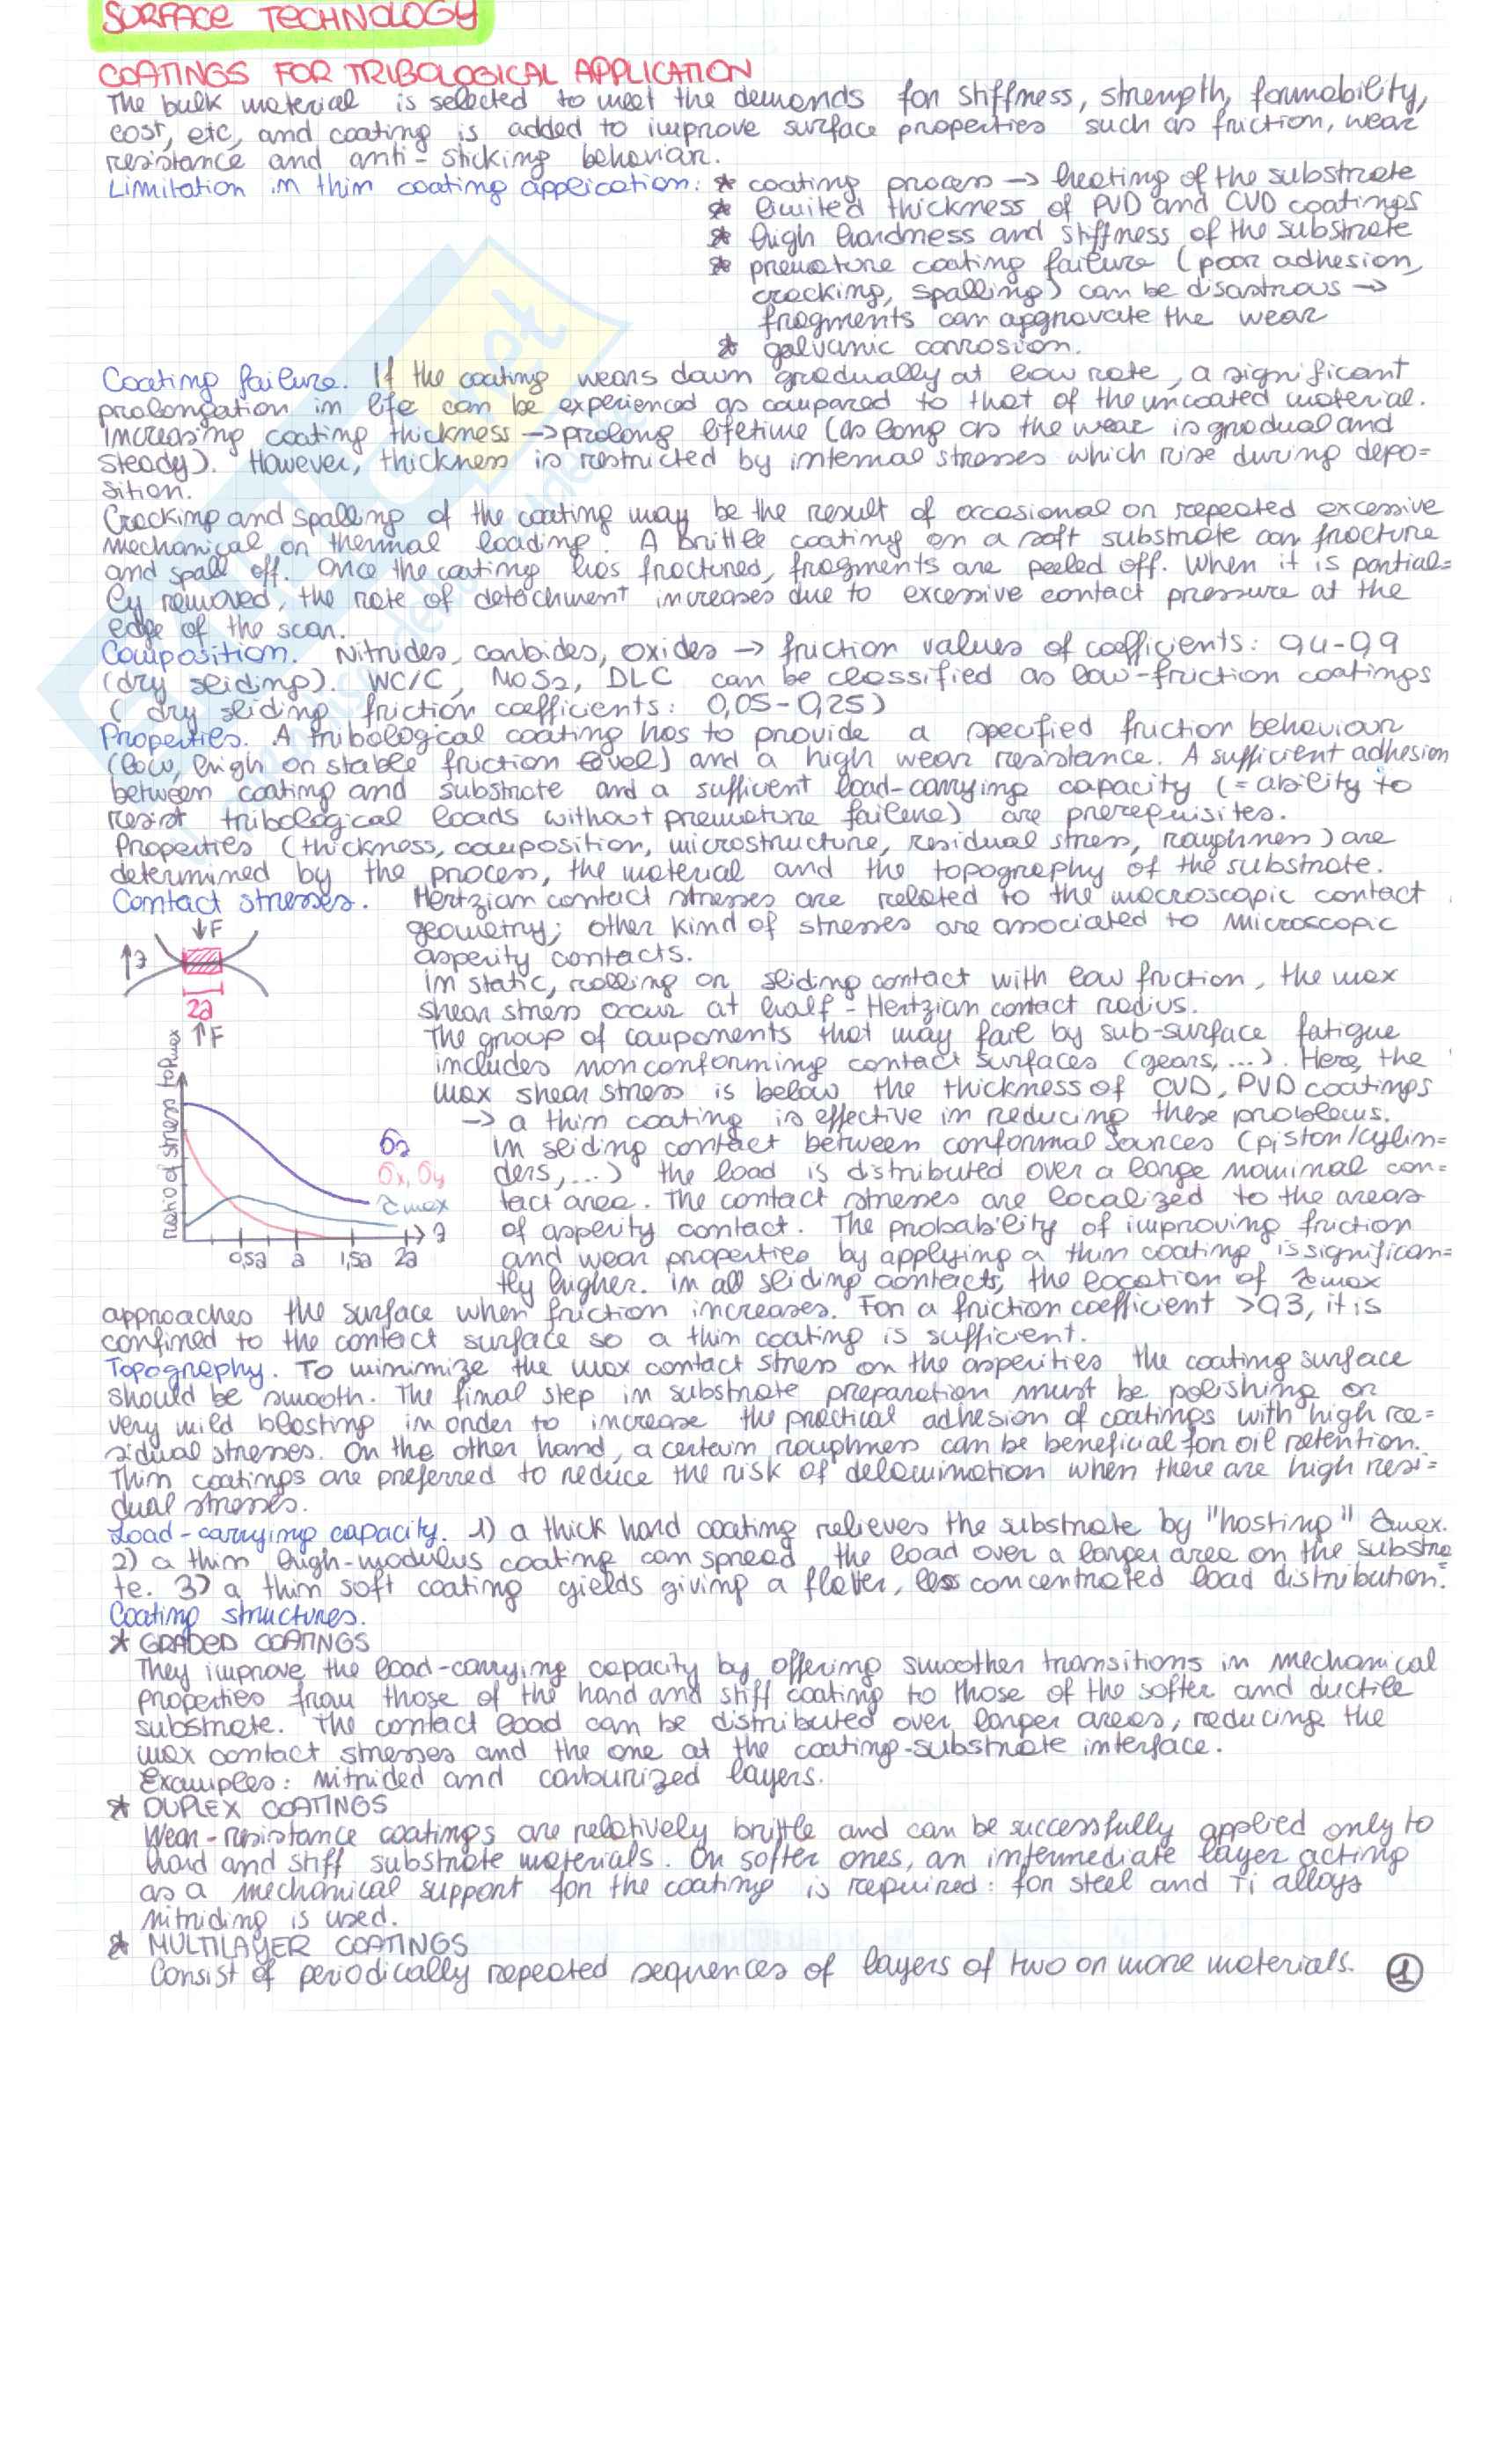 SURFACE TECHNOLOGY
COATINGS FOR TRIBOLOGICAL APPLICATION
The bulk material is selected to meet the demands for stiffness, strength, formability,
cost, etc, and coating is added to improve surface properties such as friction, wear
resistance and anti-sticking behaviour.
Limitation in thin coating application: * coating process → heating of the substrate
* limited thickness of PVD and CVD coatings
* high hardness and stiffness of the substrate
* premature coating failure (poor adhesion,
cracking, spalling) can be disastrous →
fragments can aggravate the wear
* galvanic corrosion.
Coating failure. If the coating wears down gradually at low rate, a significant
prolongation in life can be experienced as compared to that of the uncoated material.
Increasing coating thickness → prolong lifetime (as long as the wear is gradual and
steady). However, thickness is restricted by internal stresses which rise during depo=
sition.
Cracking and spalling of the coating may be the result of occasional or repeated excessive
mechanical or thermal loading. A brittle coating on a soft substrate can fracture
and spall off. Once the coating has fractured, fragments are peeled off. When it is partial=
ly removed, the rate of detachment increases due to excessive contact pressure at the
edge of the scar.
Composition. Nitrides, carbides, oxides → friction values of coefficients: 0,4-0,9
(dry sliding). WC/C, MoS2, DLC can be classified as low-friction coatings
( dry sliding friction coefficients: 0,05-0,25)
Properties. A tribological coating has to provide a specified friction behaviour
(low, high or stable friction level) and a high wear resistance. A sufficient adhesion
between coating and substrate and a sufficient load-carrying capacity (= ability to
resist tribological loads without premature failure) are prerequisites.
Properties (thickness, composition, microstructure, residual stress, roughness) are
determined by the process, the material and the topography of the substrate.
Contact stresses. Hertzian contact stresses are related to the macroscopic contact
geometry; other kind of stresses are associated to microscopic
asperity contacts.
In static, rolling or sliding contact with low friction, the max
shear stress occur at half-Hertzian contact radius.
The group of components that may fail by sub-surface fatigue
includes nonconforming contact surfaces (gears,...). Here, the
max shear stress is below the thickness of CVD, PVD coatings
→ a thin coating is effective in reducing these problems.
In sliding contact between conformal sources (piston/cylin=
ders,...) the load is distributed over a large nominal con=
tact area. The contact stresses are localized to the areas
of asperity contact. The probability of improving friction
and wear properties by applying a thin coating is significan=
tly higher. In all sliding contacts, the location of τmax
↓F
↑z
2a
↑F
ratio of stress to Pmax
σz
σx, σy
τmax
z
0,5a a 1,5a 2a
approaches the surface when friction increases. For a friction coefficient >0,3, it is
confined to the contact surface so a thin coating is sufficient.
Topography. To minimize the max contact stress on the asperities the coating surface
should be smooth. The final step in substrate preparation must be polishing or
very mild blasting in order to increase the practical adhesion of coatings with high re=
sidual stresses. On the other hand, a certain roughness can be beneficial for oil retention.
Thin coatings are preferred to reduce the risk of delamination when there are high resi=
dual stresses.
Load-carrying capacity. 1) a thick hard coating relieves the substrate by "hosting" τmax.
2) a thin high-modulus coating can spread the load over a larger area on the substra=
te. 3) a thin soft coating yields giving a flatter, less concentrated load distribution.
Coating structures.
* GRADED COATINGS
They improve the load-carrying capacity by offering smoother transitions in mechanical
properties from those of the hard and stiff coating to those of the softer and ductile
substrate. The contact load can be distributed over larger areas, reducing the
max contact stresses and the one at the coating-substrate interface.
Examples: nitrided and carburized layers.
* DUPLEX COATINGS
Wear-resistance coatings are relatively brittle and can be successfully applied only to
hard and stiff substrate materials. On softer ones, an intermediate layer acting
as a mechanical support for the coating is required: for steel and Ti alloys
nitriding is used.
* MULTILAYER COATINGS
Consist of periodically repeated sequences of layers of two or more materials. 1